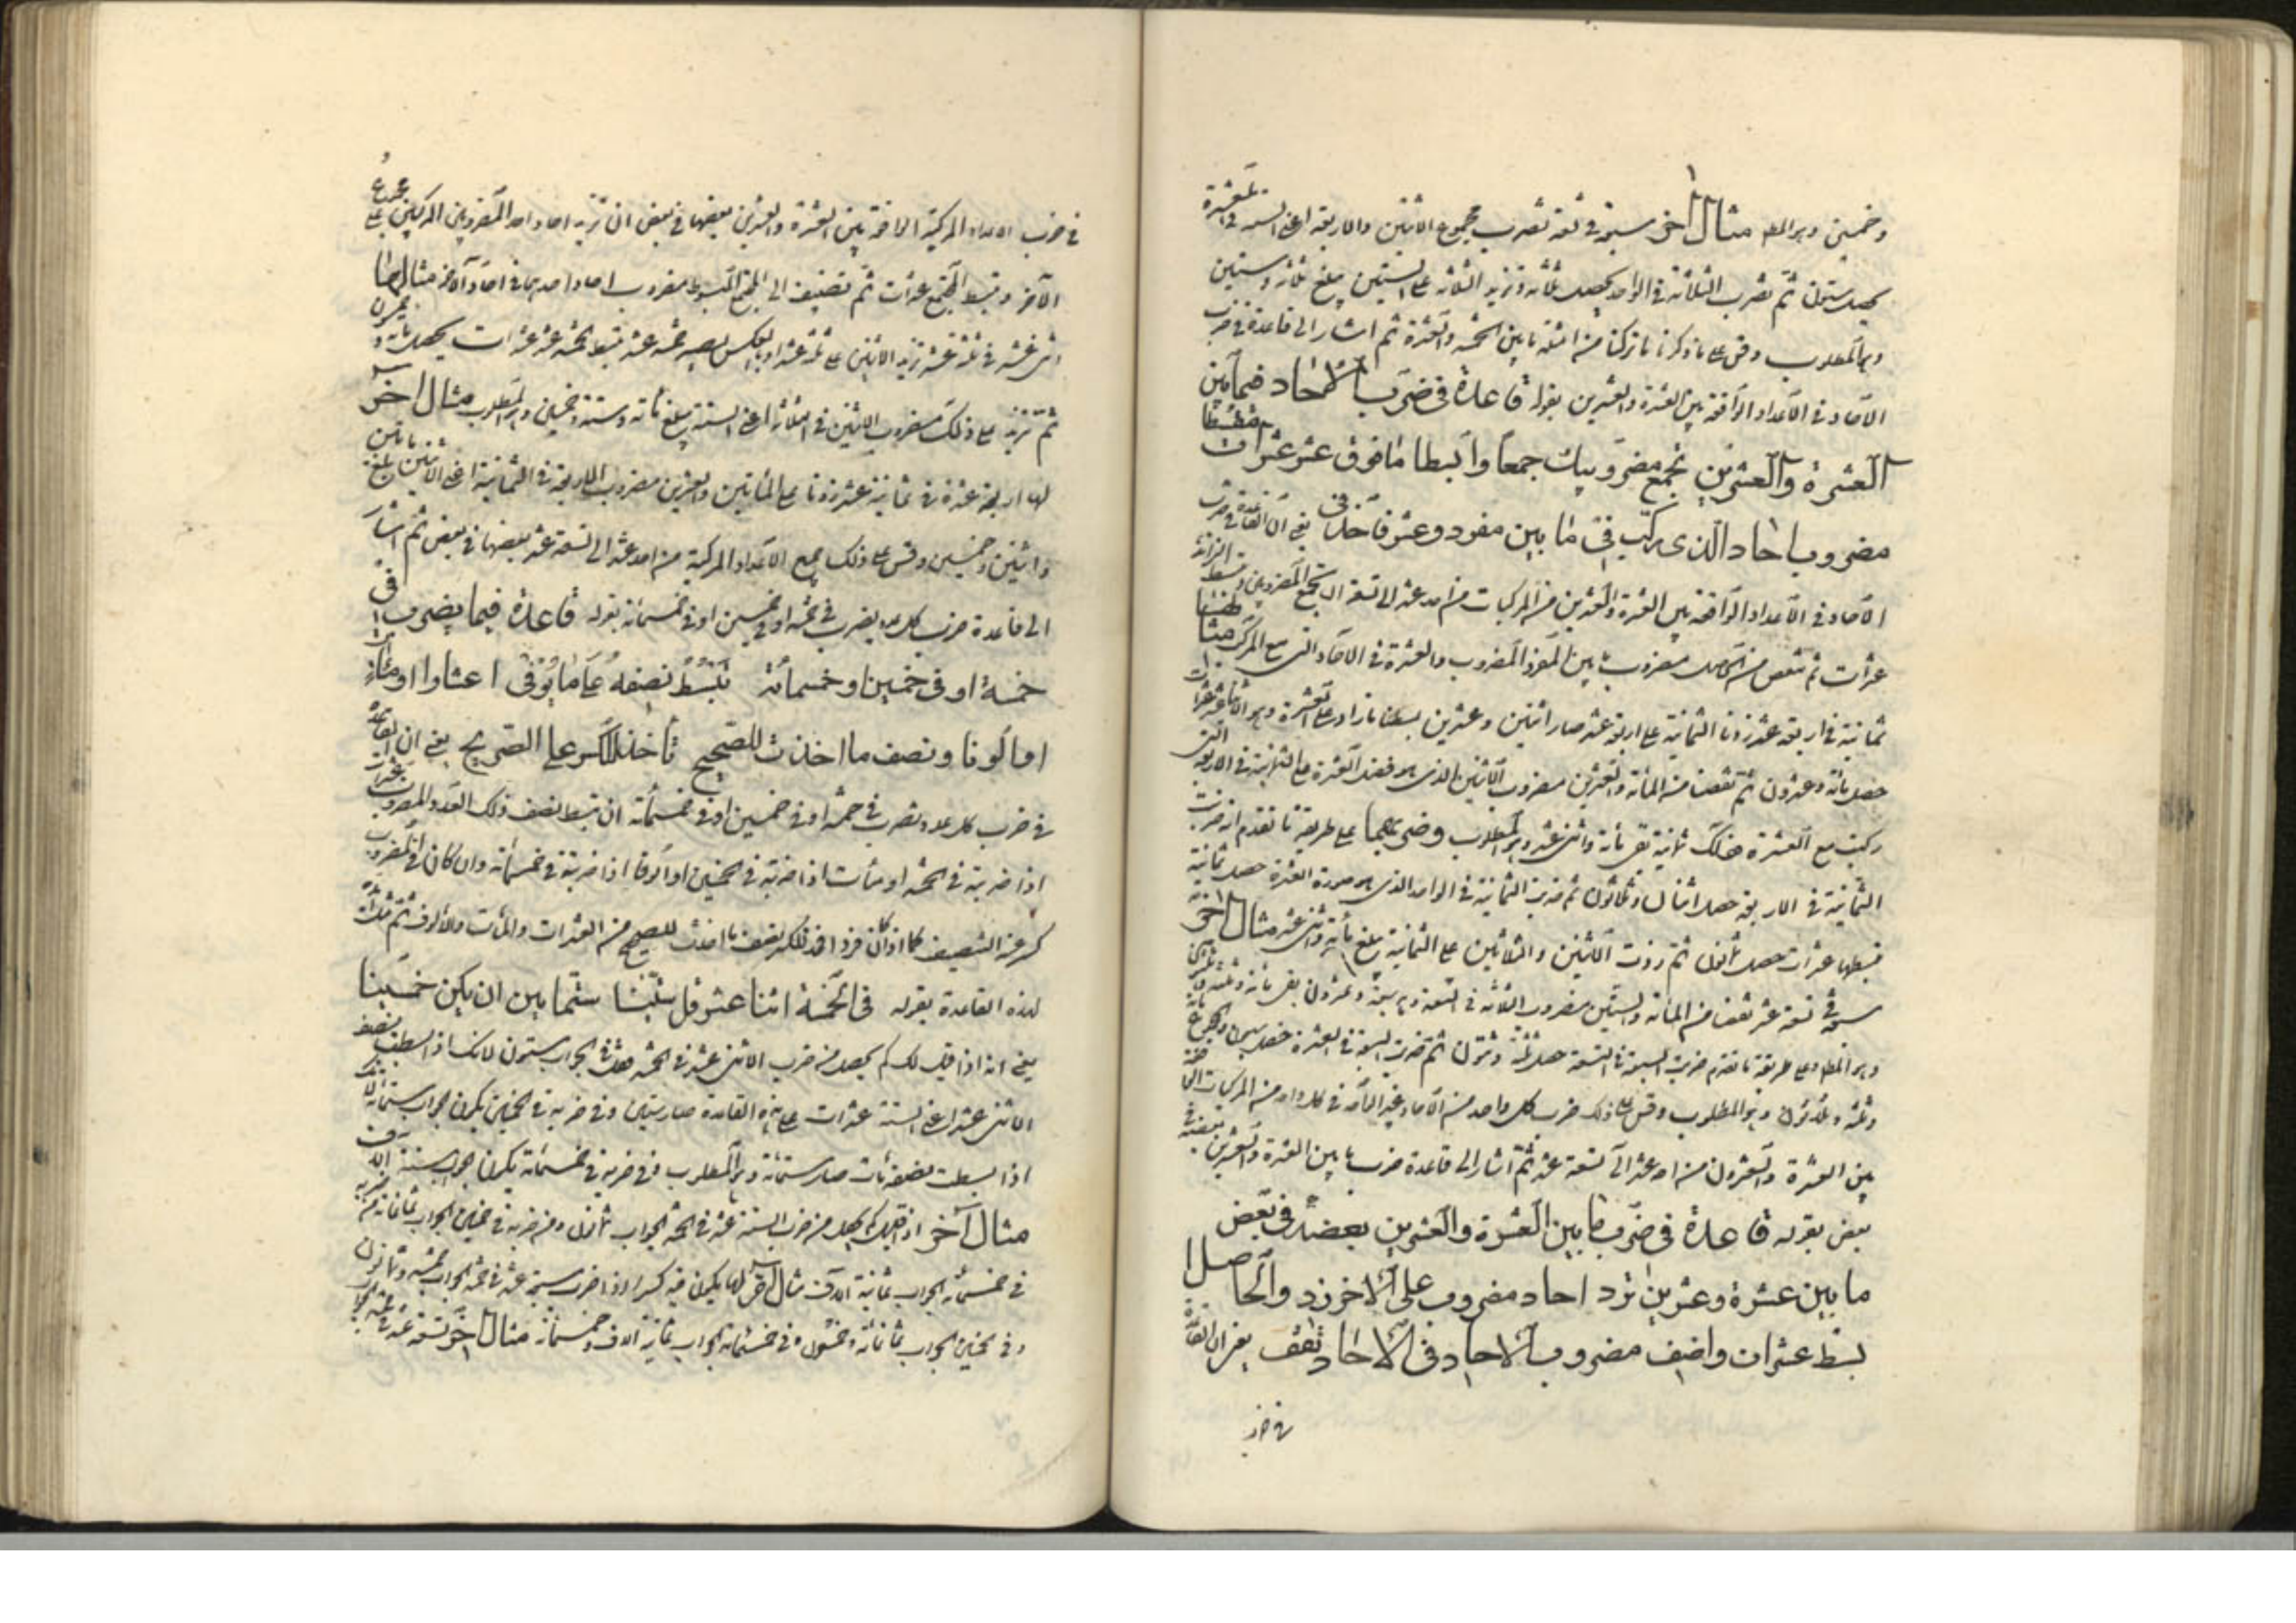 وخمسين وهو المط مثال آخر سبعة في تسعة تضرب مجموع الاثنين والاربعة اعني الستة في العشرة
يحصل ستون ثم تضرب الثلاثة في الواحد يحصل ثلثة وتزيد الثلاثة على الستين يبلغ ثلثة وستين
وهو المطلوب وقس على ما ذكرنا ما تركنا من امثلة ما بين الخمسة والعشرة ثم اشار الى قاعدة في ضرب
الآحاد في الاعداد الواقعة بين العشرة والعشرين بقوله قاعدة في ضرب الاحاد فيما بين
العشرة والعشرين تجمع مضروبيك جمعا وابسطا ما فوق عشر عشرات
مضروب احاد الذى ركب في ما بين مفرد وعشر فاحذف يعني ان القاعدة في ضرب
الآحاد في الاعداد الواقعة بين العشرة والعشرين من المركبات من احد عشر الى تسعة ان تجمع المضروبين وتبسط الزائد
عشرات ثم تنقص من الحاصل مضروب ما بين المفرد المضروب والعشرة في الآحاد التى مع المركب مثالها
ثمانية في اربعة عشر زدنا الثمانية على اربعة عشر صار اثنين وعشرين بسطنا ما زاد على العشرة وهو الاثنا عشر عشرات
حصل مائة وعشرون ثم نقصنا من المائة والعشرين مضروب الاثنين الذى هو فضل العشرة على الثمانية في الاربعة التى
ركبت مع العشرة هنالك ثمانية بقى مائة واثنى عشر وهو المطلوب وضربهما على طريقة ما تقدم ان ضربت
الثمانية في الاربعة حصل اثنان وثلاثون ثم ضربت الثمانية في الواحد الذى هو صورة العشرة حصل ثمانية
فبسطها عشرات حصل ثمانون ثم زدت الاثنين والثلاثين على الثمانين يبلغ مائة واثنى عشر مثال آخر
سبعة في تسعة عشر تنقص من المائة والستين مضروب الثلاثة في التسعة وهو سبعة وعشرون بقى مائة وثلثة وثلثون
وهو المط وعلى طريقة ما تقدم ضربت السبعة في التسعة حصل ثلثة وستون ثم ضربت السبعة في العشرة حصل سبعون والمجموع مائة
وثلثة وثلثون وهو المطلوب وقس على ذلك ضرب كل واحد من الآحاد وغير الآحاد في كل واحد من المركبات الواقعة
بين العشرة والعشرون من احد عشر الى تسعة عشر ثم اشار الى قاعدة ضرب ما بين العشرة والعشرين بعضه في
بعض بقوله قاعدة في ضرب ما بين العشرة والعشرين بعضه في بعض
ما بين عشرة وعشرين ترد احاد مضروب على الاخر زد والحاصل
بسط عشرات واضف مضروب الاحاد في الاحاد تقف يعني ان القاعدة
في ضرب
في ضرب الاعداد المركبة الواقعة بين العشرة والعشرين بعضها في بعض ان تزيد احاد احد المضروبين المركبين على مجموع
الآخر وتبسط المجتمع عشرات ثم تضيف الى المجتمع المبسوط مضروب احاد احدهما في احاد الآخر مثالها
اثنى عشر في ثلثة عشر تزيد الاثنين على ثلثة عشر او بالعكس يصير خمسة عشر تبسط الخمسة عشر عشرات يحصل مائة وخمسون
ثم تزيد على ذلك مضروب الاثنين في الثلاثة اعني الستة يبلغ مائة وستة وخمسين وهو المطلوب مثال آخر
لها اربعة عشرة في ثمانية عشر زدنا على المأتين والعشرين مضروب الاربعة في الثمانية اعني الاثنين بلغ مائتين
واثنين وخمسين وقس على ذلك جميع الاعداد المركبة من احد عشر الى تسعة عشر بعضها في بعض ثم اشار
الى قاعدة ضرب كل عدد يضرب في خمسة او في خمسين او في خمسمائة بقوله قاعدة فيما يضرب في
خمسة او في خمسين او خمسمائة تبسط نصفه على ما يوفى اعشارا او مئات
او الوفا ونصف ما اخذت للصحيح تأخذ للكسر على الصريح يعني ان القاعدة
في ضرب كل عدد تضرب في خمسة او في خمسين او في خمسمائة ان تبسط نصف ذلك العدد المضروب عشرات
اذا ضربته في الخمسة او مئات اذا ضربته في الخمسين او الوفا اذا ضربته في خمسمائة وان كان في المضروب
كسر عند التنصيف كما اذا كان فردا فخذ لذلك نصف ما اخذت للصحيح من العشرات والمآت والالوف ثم مثل
لهذه القاعدة بقوله في الخمسة اثنا عشر قل ستينا ستما بين ان يكن خمسينا
يعني انه اذا قيل لك كم يحصل من ضرب الاثنى عشر في الخمسة فقل في الجواب ستون لانك اذا بسطت نصف
الاثنى عشر اعني الستة عشرات على هذه القاعدة صار ستين وفي ضربه في الخمسين يكون الجواب ستمائة لانك
اذا بسطت نصفه مئات صار ستمائة وهو المطلوب وفي ضربه في خمسمائة يكون الجواب ستة آلاف
مثال آخر اذا قيل لك كم يحصل من ضرب الستة عشر في الخمسة الجواب ثمانون ومن ضربه في خمسين الجواب ثمانمائة ومن ضربه
في خمسمائة الجواب ثمانية آلاف مثال آخر لها يكون فيه كسر اذا ضرب سبعة عشر في خمسة الجواب خمسة وثمانون
وفي خمسين الجواب ثمانمائة وخمسون وفي خمسمائة الجواب ثمانية الاف وخمسمائة مثال آخر تسعة عشر في خمسة الجواب